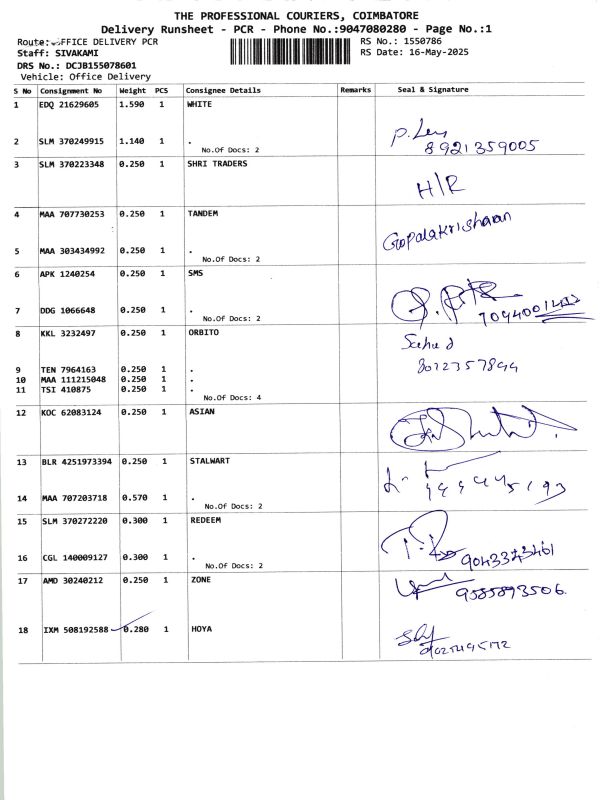 THE PROFESSIONAL COURIERS, COIMBATORE
Delivery Runsheet - PCR - Phone No.:9047080280 - Page No.:1
Route: OFFICE DELIVERY PCR
RS No.: 1550786
Staff: SIVAKAMI
RS Date: 16-May-2025
DRS No.: DCJB155078601
Vehicle: Office Delivery
S No Consignment No Weight PCS Consignee Details Remarks Seal & Signature
1 EDQ 21629605 1.590 1 WHITE
2 SLM 370249915 1.140 1 .
No.Of Docs: 2
8921359005
3 SLM 370223348 0.250 1 SHRI TRADERS
H/R
4 MAA 707730253 0.250 1 TANDEM
Gopalakrishanan
5 MAA 303434992 0.250 1 .
No.Of Docs: 2
6 APK 1240254 0.250 1 SMS
7 DDG 1066648 0.250 1 .
No.Of Docs: 2
8 KKL 3232497 0.250 1 ORBITO
9 TEN 7964163 0.250 1 .
10 MAA 111215048 0.250 1 .
11 TSI 410875 0.250 1 .
No.Of Docs: 4
12 KOC 62083124 0.250 1 ASIAN
13 BLR 4251973394 0.250 1 STALWART
14 MAA 707203718 0.570 1 .
No.Of Docs: 2
15 SLM 370272220 0.300 1 REDEEM
16 CGL 140009127 0.300 1 .
No.Of Docs: 2
9043343461
17 AMD 30240212 0.250 1 ZONE
9585893506
18 IXM 508192588 0.280 1 HOYA